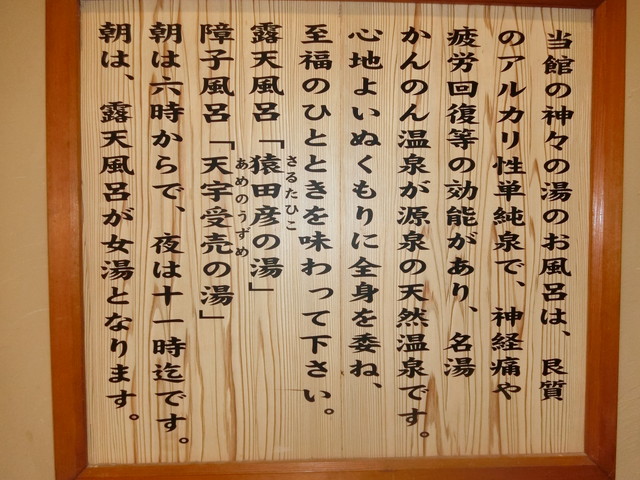 当館の神々の湯のお風呂は、良質
のアルカリ性単純泉で、神経痛や
疲労回復等の効能があり、名湯
かんのん温泉が源泉の天然温泉です。
心地よいぬくもりに全身を委ね、
至福のひとときを味わって下さい。
露天風呂「猿田彦の湯」
さるたひこ
障子風呂「天宇受売の湯」
あめのうずめ
朝は六時からで、夜は十一時迄です。
朝は、露天風呂が女湯となります。